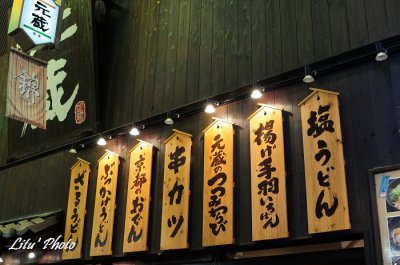 元蔵
蔵
塩うどん
揚げ手羽いろいろ
元蔵のつつみあげ
串カツ
京都のおでん
ぶっかけうどん
ざるうどん
Litu' Photo